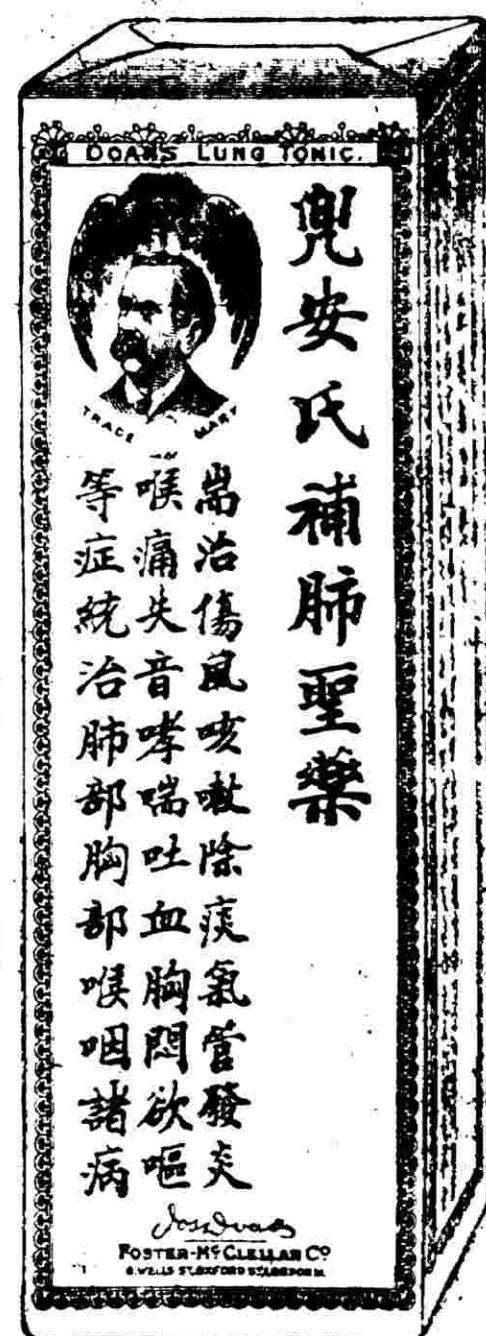 DOAN'S LUNG TONIC.
兜安氏補肺聖藥
TRADE MARK
耑治傷風咳嗽除痰氣管發炎
喉痛失音哮喘吐血胸悶欲嘔
等症統治肺部胸部喉咽諸病
FOSTER-McCLELLAN Co
8. WELLS ST. OXFORD ST. LONDON